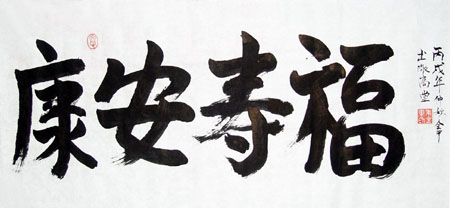 福寿安康
丙戌年仲秋